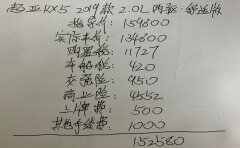 起亚KX5 2019款 2.0L 两驱 舒适版
指导价: 159800
实际车价: 134800
购置税: 11727
车船税: 420
交强险: 950
商业险: 4552
上牌费: 500
其他手续费: 1000
152580